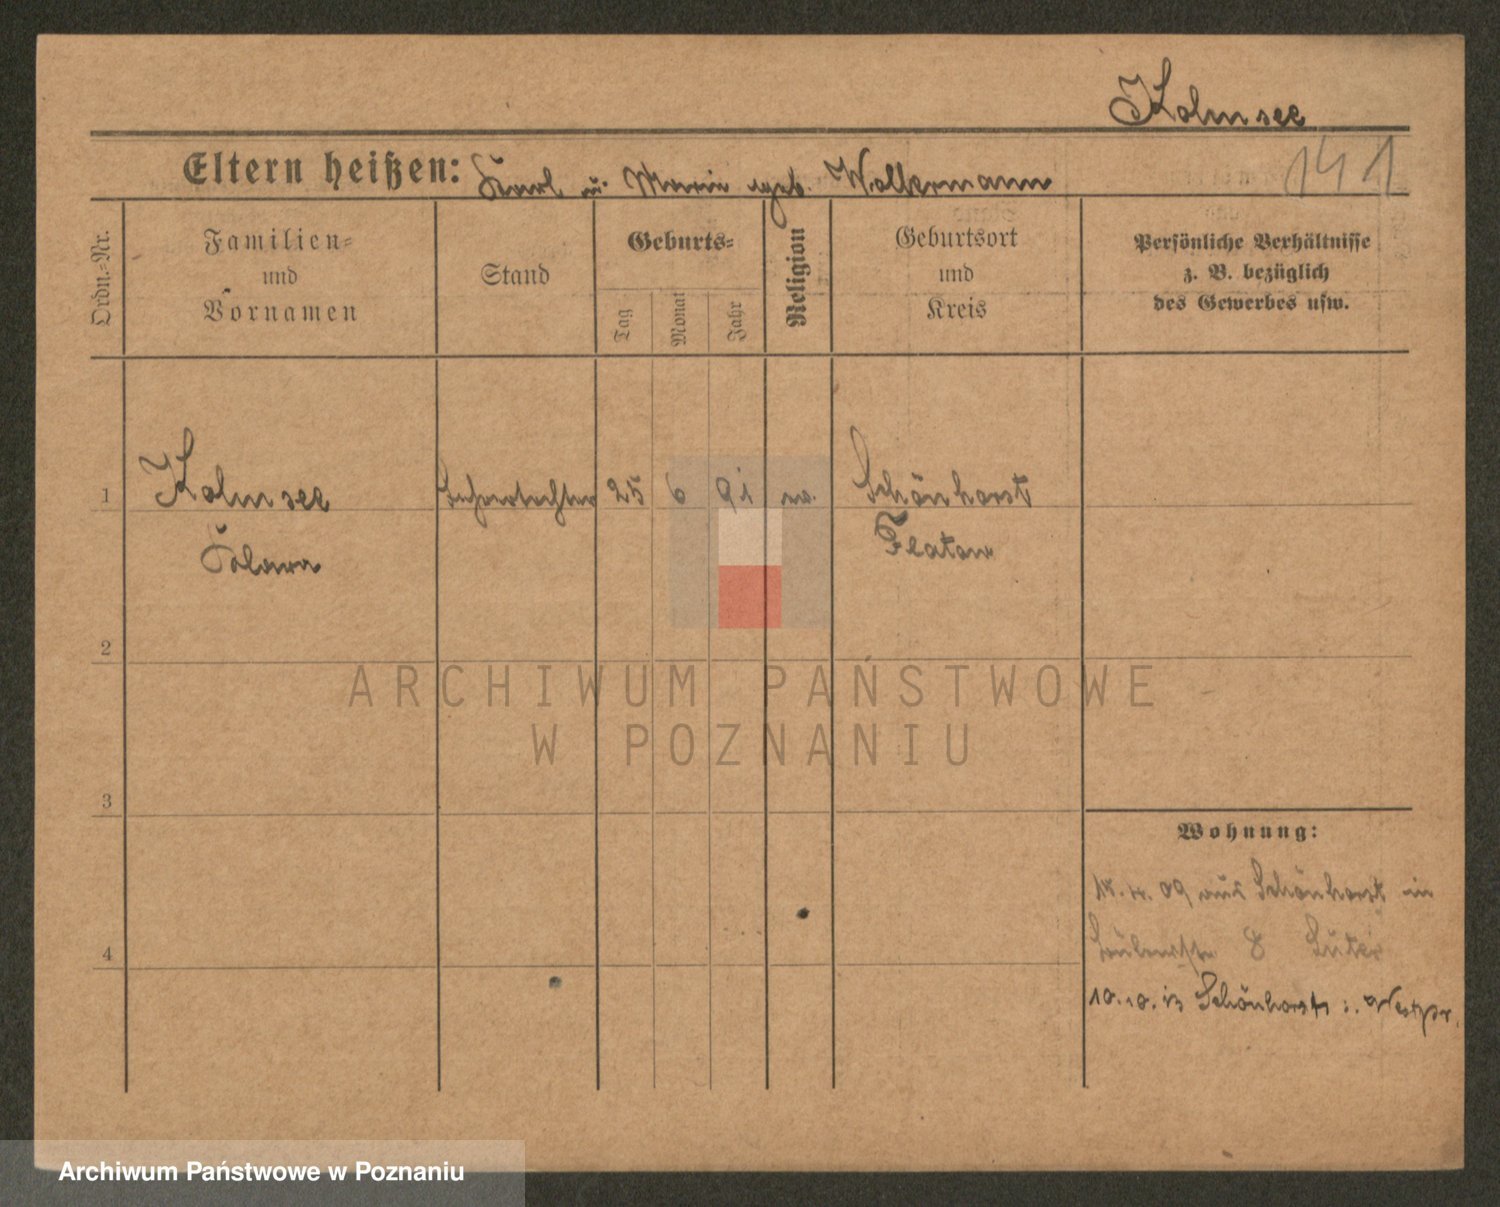 Kolmsee
141
Eltern heißen: Karl u. Marie geb. Wolkermann
Ordn.=Nr.
Familien=
und
Vornamen
Stand
Geburts=
Tag
Monat
Jahr
Religion
Geburtsort
und
Kreis
Persönliche Verhältnisse
z. B. bezüglich
des Gewerbes usw.
1 Kolmsee Lehrertochter 25 6 91 ev. Schönhorst
Flatow
2
ARCHIWUM PAŃSTWOWE
W POZNANIU
3
Wohnung:
4. 09 aus Schönhorst in
4
8
10.10.13 Schönhorst i. Westpr.
Archiwum Państwowe w Poznaniu